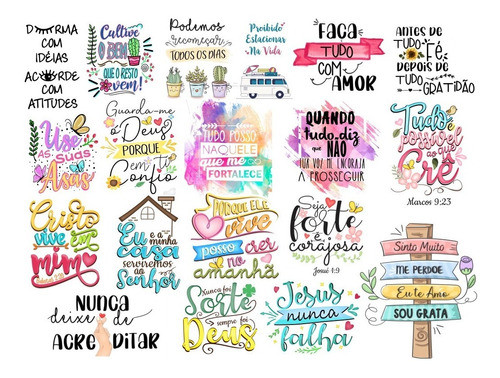 DURMA
COM
IDÉIAS
ACORDE
COM
ATITUDES
Cultive
O BEM
QUE O RESTO
vem!
Podemos
recomeçar
TODOS OS DIAS
Proibido
Estacionar
Na Vida
FAÇA
TUDO
COM
AMOR
ANTES DE
TUDO Fé,
DEPOIS DE
TUDO GRATIDÃO
Use
AS SUAS
Asas
Guarda-me
o Deus
PORQUE
em ti
Confio
TUDO POSSO
NAQUELE
que me
FORTALECE
QUANDO
tudo diz
QUE NÃO
TUA VOZ ME ENCORAJA
A PROSSEGUIR
Tudo
possível
ao que
Crê
Marcos 9:23
Cristo
vive em
mim
Eu e a
minha
casa
serviremos
ao
Senhor
PORQUE ELE
vive
posso
crer
no
amanhã
Seja
forte
e
corajosa
Josué 1:9
Sinto Muito
ME PERDOE
Eu te Amo
SOU GRATA
NUNCA
deixe de
ACREDITAR
Nunca foi
Sorte
sempre foi
Deus
Jesus
nunca
falha